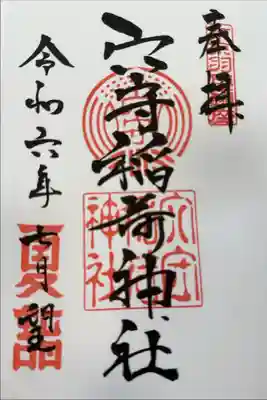 奉拝
穴守稲荷神社
穴守
神社
令和六年
七月望
夏詣